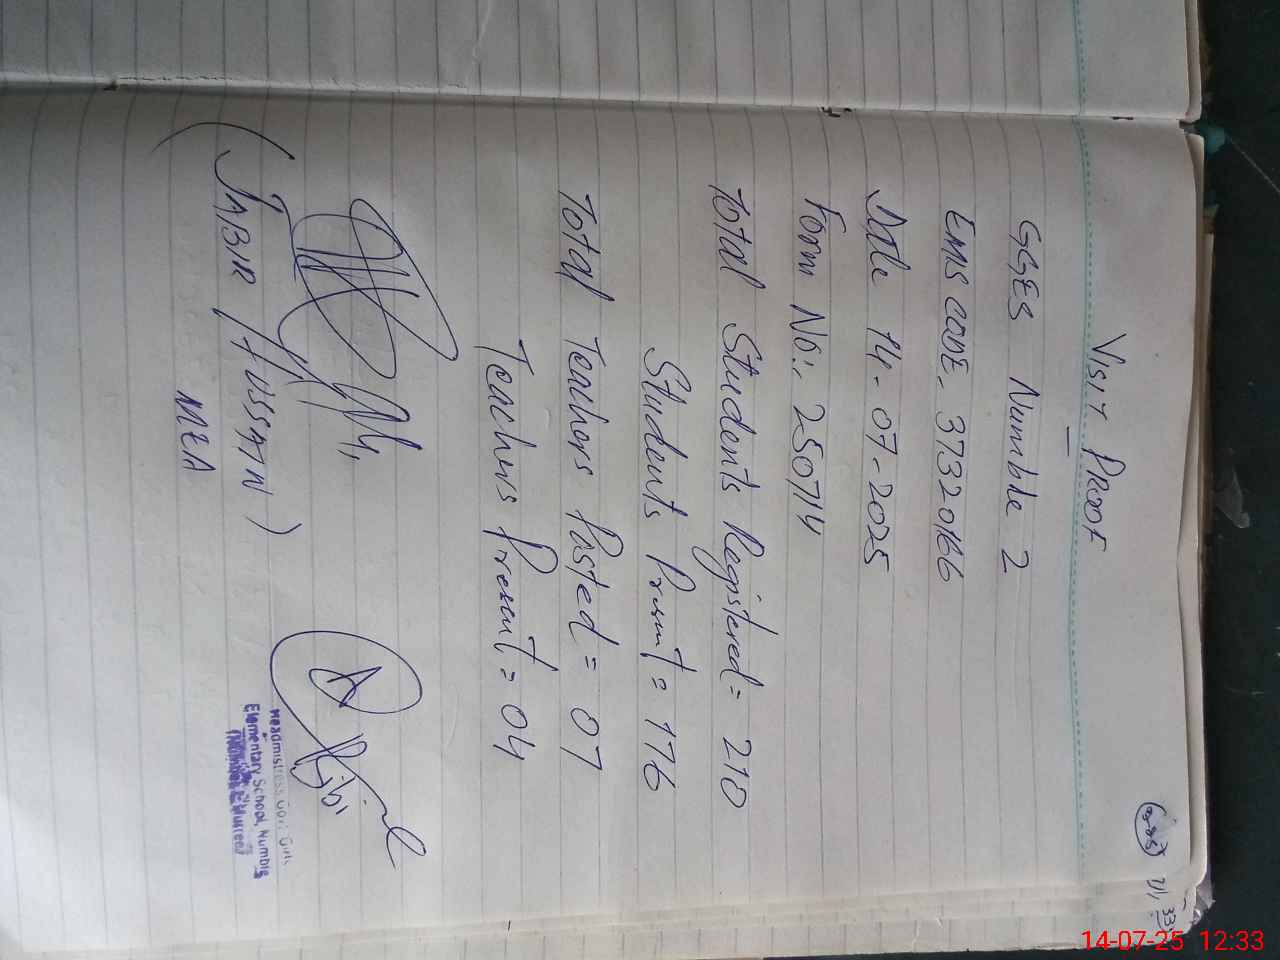 Visit Proof
GGES Numble 2
EMIS CODE - 37320166
Date 14-07-2025
Form No:- 250714
Total Students Registered = 210
Students Present = 176
Total Teachers Posted = 07
Teachers Present = 04
(JABIR HUSSAIN)
MEA
Headmistress Govt. Girls
Elementary School, Numble
Murree
14-07-25 12:33